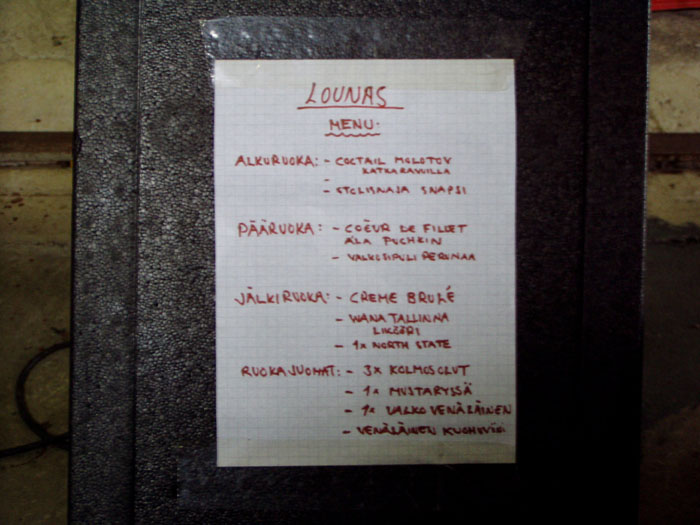 LOUNAS
MENU.
ALKURUOKA: - COCTAIL MOLOTOV
KATKARAVUILLA
-
- STOLISNAJA SNAPSI
PÄÄRUOKA: - COËUR DE FILLET
A'LA PUCHKIN
- VALKOSIPULI PERUNAA
JÄLKIRUOKA: - CREME BRULÉ
- WANA TALLINNA
LIKÖÖRI
- 1x NORTH STATE
RUOKAJUOMAT: - 3x KOLMOSOLUT
- 1x MUSTARYSSÄ
- 1x VALKOVENÄLÄINEN
- VENÄLÄINEN